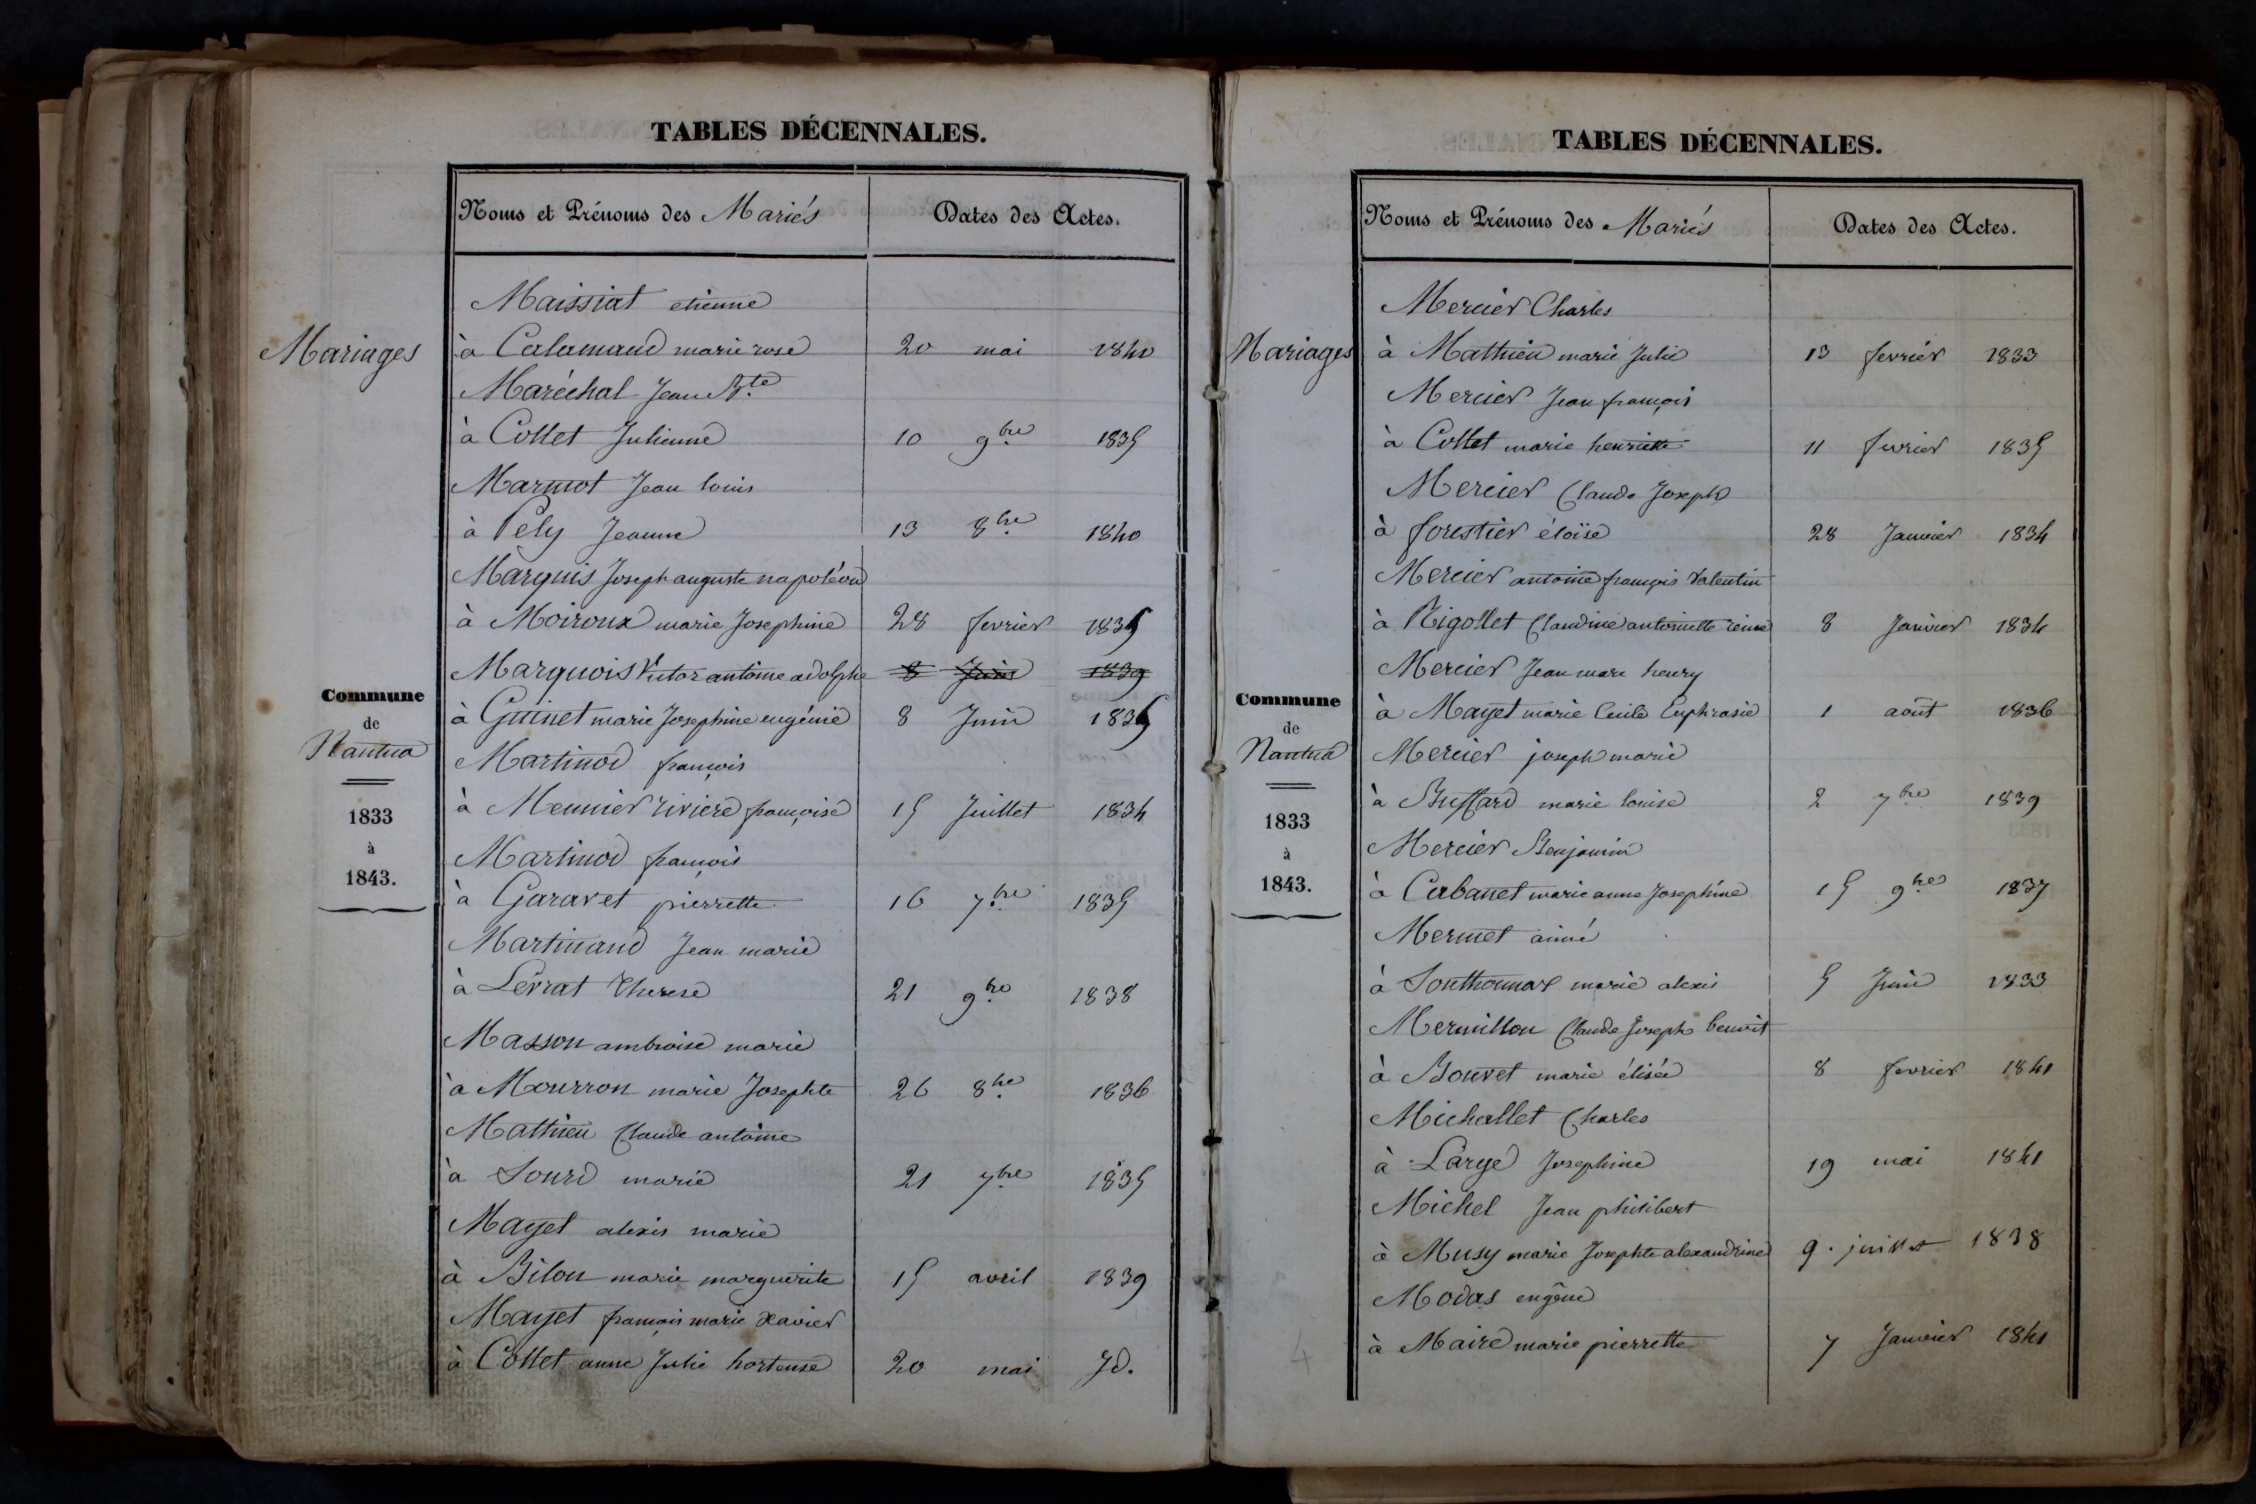 TABLES DÉCENNALES.
Noms et Prénoms des Mariés Dates des Actes.
Mariages
Commune
de
Nantua
1833
à
1843.
Maissiat etienne
à Calamand marie rose 20 mai 1840
Maréchal Jean Bte
à Collet Julienne 10 9bre 1835
Marmot Jean louis
à Pely Jeanne 13 8bre 1840
Marquis Joseph auguste napoléon
à Moiroux marie Josephine 28 fevrier 1835
Marquois Victor antoine adolphe 8 Juin 1839
à Guinet marie Josephine eugénie 8 Juin 1835
Martinod françois
à Meunier riviere françoise 15 Juillet 1834
Martinod françois
à Garavet pierrette 16 7bre 1835
Martinand Jean marie
à Levrat Therese 21 9bre 1838
Masson ambroise marie
à Mourron marie Josephte 26 8bre 1836
Mathieu Claude antoine
à Sourd marie 21 7bre 1835
Mayet alexis marie
à Bilon marie marguerite 15 avril 1839
Mayet françois marie Xavier
à Collet anne Julie hortense 20 mai Jd.
TABLES DÉCENNALES.
Noms et Prénoms des Mariés Dates des Actes.
Mariages
Commune
de
Nantua
1833
à
1843.
Mercier Charles
à Mathieu marie Julie 13 fevrier 1833
Mercier Jean françois
à Collet marie henriette 11 fevrier 1835
Mercier Claude Joseph
à forestier éloïse 28 Janvier 1834
Mercier antoine françois Valentin
à Rigollet Claudine antoinette reine 8 Janvier 1834
Mercier Jean marc henry
à Mayet marie Cecile Euphrasie 1 août 1836
Mercier joseph marie
à Buffard marie louise 2 7bre 1839
Mercier Benjamin
à Cabanet marie anne Josephine 15 9bre 1837
Mermet aimé
à Sonthonnax marie alexis 5 Juin 1833
Mermillon Claude Joseph benoit
à Bouvet marie élisée 8 fevrier 1841
Michallet Charles
à Large Josephine 19 mai 1841
Michel Jean philibert
à Musy marie Josephte alexandrine 9 juillet 1838
Modas eugêne
à Maire marie pierrette 7 Janvier 1841
4